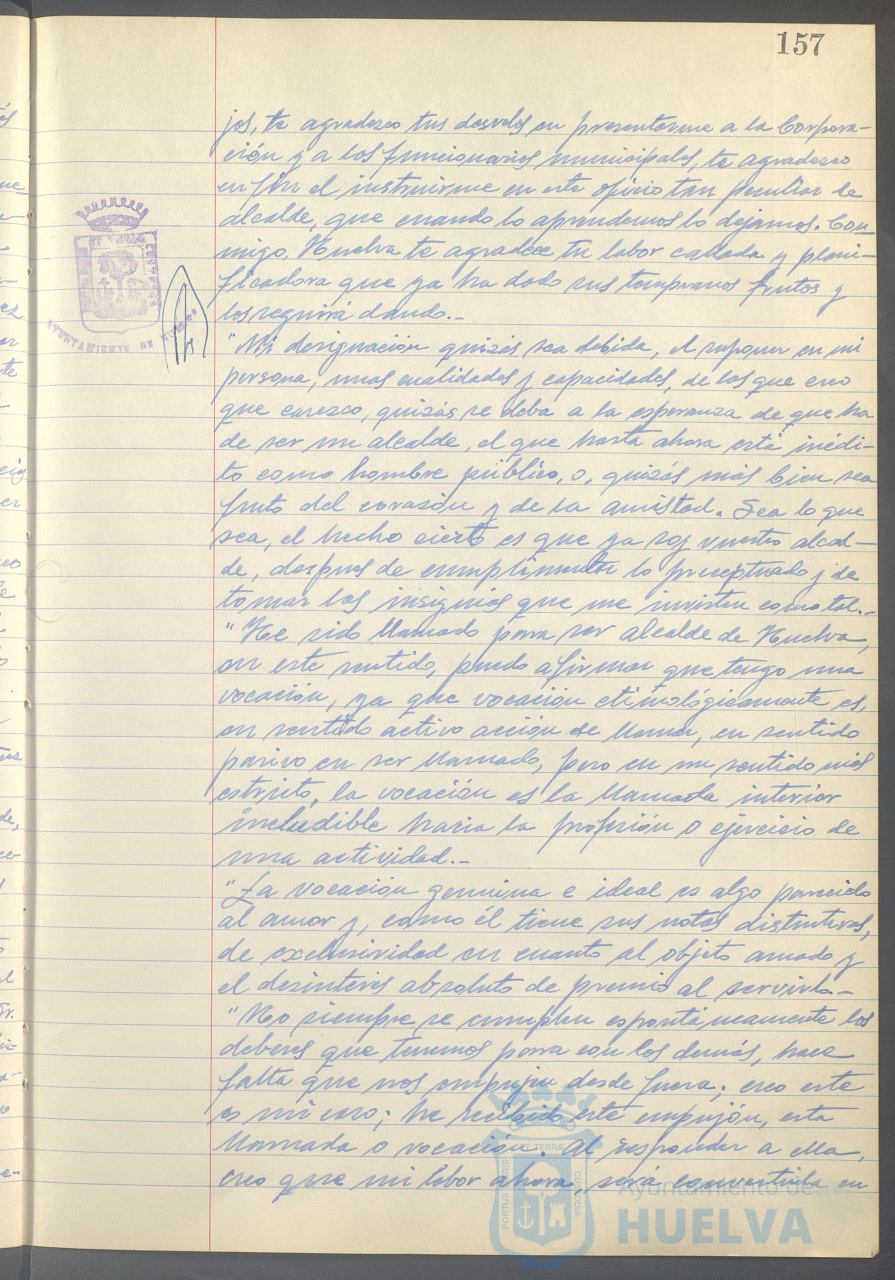 157
jos, te agradezco tus desvelos en presentarme a la Corpora-
ción y a los funcionarios municipales, te agradezco
en fín el instruirme en este oficio tan peculiar de
alcalde, que cuando lo aprendemos lo dejamos. Con-
migo, Huelva te agradece tu labor callada y plani-
ficadora que ya ha dado sus tempranos frutos y
los seguirá dando.-
"Mi designación quizás sea debida, al suponer en mi
persona, unas cualidades y capacidades, de las que creo
que carezco, quizás se deba a la esperanza de que ha
de ser un alcalde, el que hasta ahora está inédi-
to como hombre público, o, quizás más bien sea
fruto del corazón y de la amistad. Sea lo que
sea, el hecho cierto es que ya soy vuestro alcal-
de, despues de cumplimentar lo preceptuado y de
tomar las insignias que me invisten como tal.-
"He sido llamado para ser alcalde de Huelva,
en este sentido, puedo afirmar que tengo una
vocación, ya que vocación etimológicamente es,
en sentido activo acción de llamar, en sentido
pasivo en ser llamado, pero en un sentido más
estricto, la vocación es la llamada interior
ineludible hacia la profesión o ejercicio de
una actividad.-
"La vocación genuina e ideal es algo parecido
al amor y, como él tiene sus notas distintivas,
de exclusividad en cuanto al objeto amado y
el desinterés absoluto de premio al servirlo-
"No siempre se cumplen espontáneamente los
deberes que tenemos para con los demás, hace
falta que nos empujen desde fuera; creo este
es mi caso; he recibido este empujón, esta
llamada o vocación. Al responder a ella,
creo que mi labor ahora, será convertirla en
AYUNTAMIENTO DE HUELVA
PORTUS MARIS ET TERRAE CUSTODIA
Ayuntamiento de
HUELVA